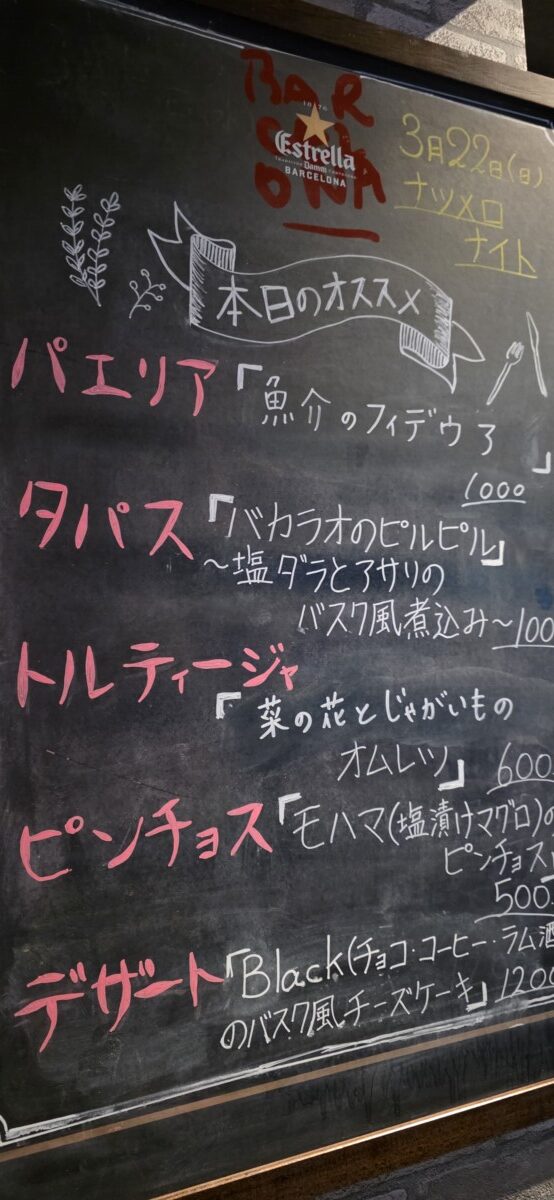 BAR
CEL
ONA
1876
Estrella
Damm
BARCELONA
3月22日(日)
ナツメロ
ナイト
本日のオススメ
パエリア「魚介のフィデウア」
1000
タパス「バカラオのピルピル」
～塩ダラとアサリの
バスク風煮込み～100
トルティージャ
「菜の花とじゃがいもの
オムレツ」 600
ピンチョス「モハマ(塩漬けマグロ)の
ピンチョス」
500
デザート「Black(チョコ・コーヒー・ラム酒
のバスク風チーズケーキ」1200